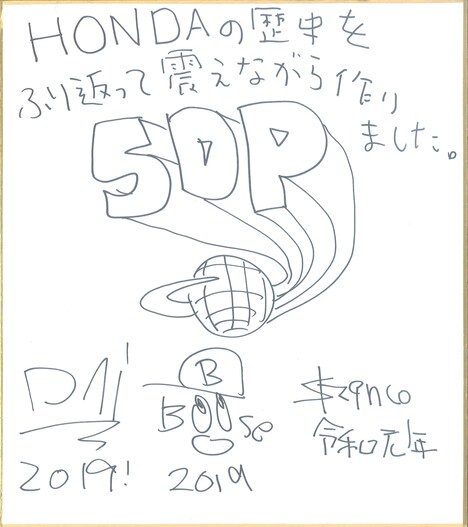 HONDAの歴史を
ふり返って震えながら作り
ました。
SDP
DAI
2019!
B
Boose
2019
令和元年